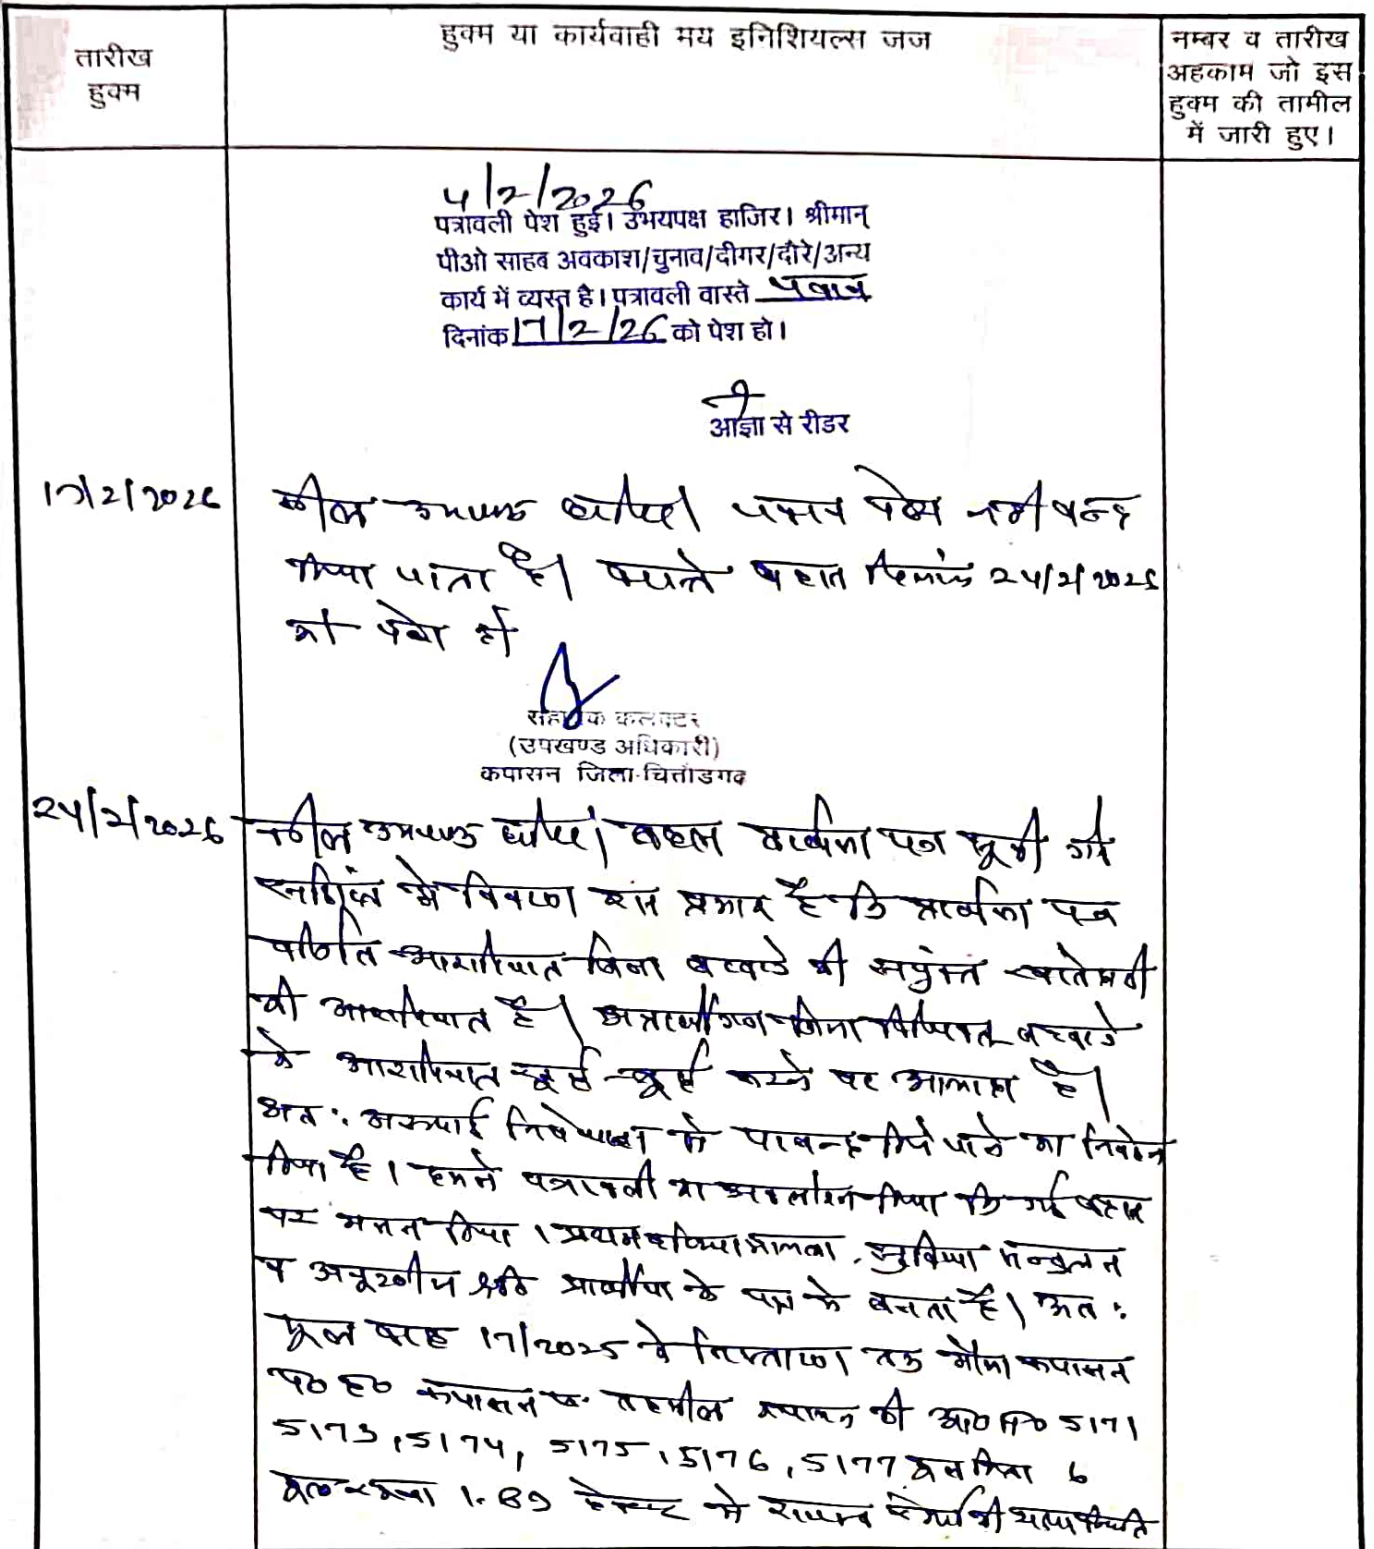 तारीख
हुक्म
हुक्म या कार्यवाही मय इनिशियल्स जज
नम्बर व तारीख
अहकाम जो इस
हुक्म की तामील
में जारी हुए।
4/2/2026
पत्रावली पेश हुई। उभयपक्ष हाजिर। श्रीमान्
पीओ साहब अवकाश/चुनाव/दीगर/दौरे/अन्य
कार्य में व्यस्त है। पत्रावली वास्ते जवाब
दिनांक 17/2/26 को पेश हो।
आज्ञा से रीडर
17/2/2026
वकील उभयपक्ष उप०। जवाब पेश नहीं बन्द
किया जाता है। वास्ते बहस दिनांक 24/2/2026
को पेश हो
सहायक कलक्टर
(उपखण्ड अधिकारी)
कपासन जिला-चित्तौडगढ
24/2/2026
वकील उभयपक्ष बहस प्रार्थना पत्र सुनी गई
संक्षिप्त में विवरण इस प्रकार है कि प्रार्थना पत्र
वर्णित आराजियात बिना बटवाडे की संयुक्त खातेदारी
की आराजियात है। अप्रार्थीगण बिना विधिवत बटवाडे
के आराजियात खुर्द बुर्द करने पर आमादा है।
अतः अस्थाई निषेधाज्ञा से पाबन्द किये जाने का निवेदन
किया है। हमने पत्रावली का अवलोकन किया कि गई बहस
पर मनन किया। प्रथम दृष्टया मामला, सुविधा सन्तुलन
व अपूरणीय क्षति प्रार्थीया के पक्ष में बनता है। अतः
मूल वाद 17/2025 के निस्तारण तक मौजा कपासन
प० ह० कपासन तहसील कपासन की आ० न० 5171
5173, 5174, 5175, 5176, 5177 कुल किता 6
कुल रकबा 1.89 हेक्टर में की यथास्थिति